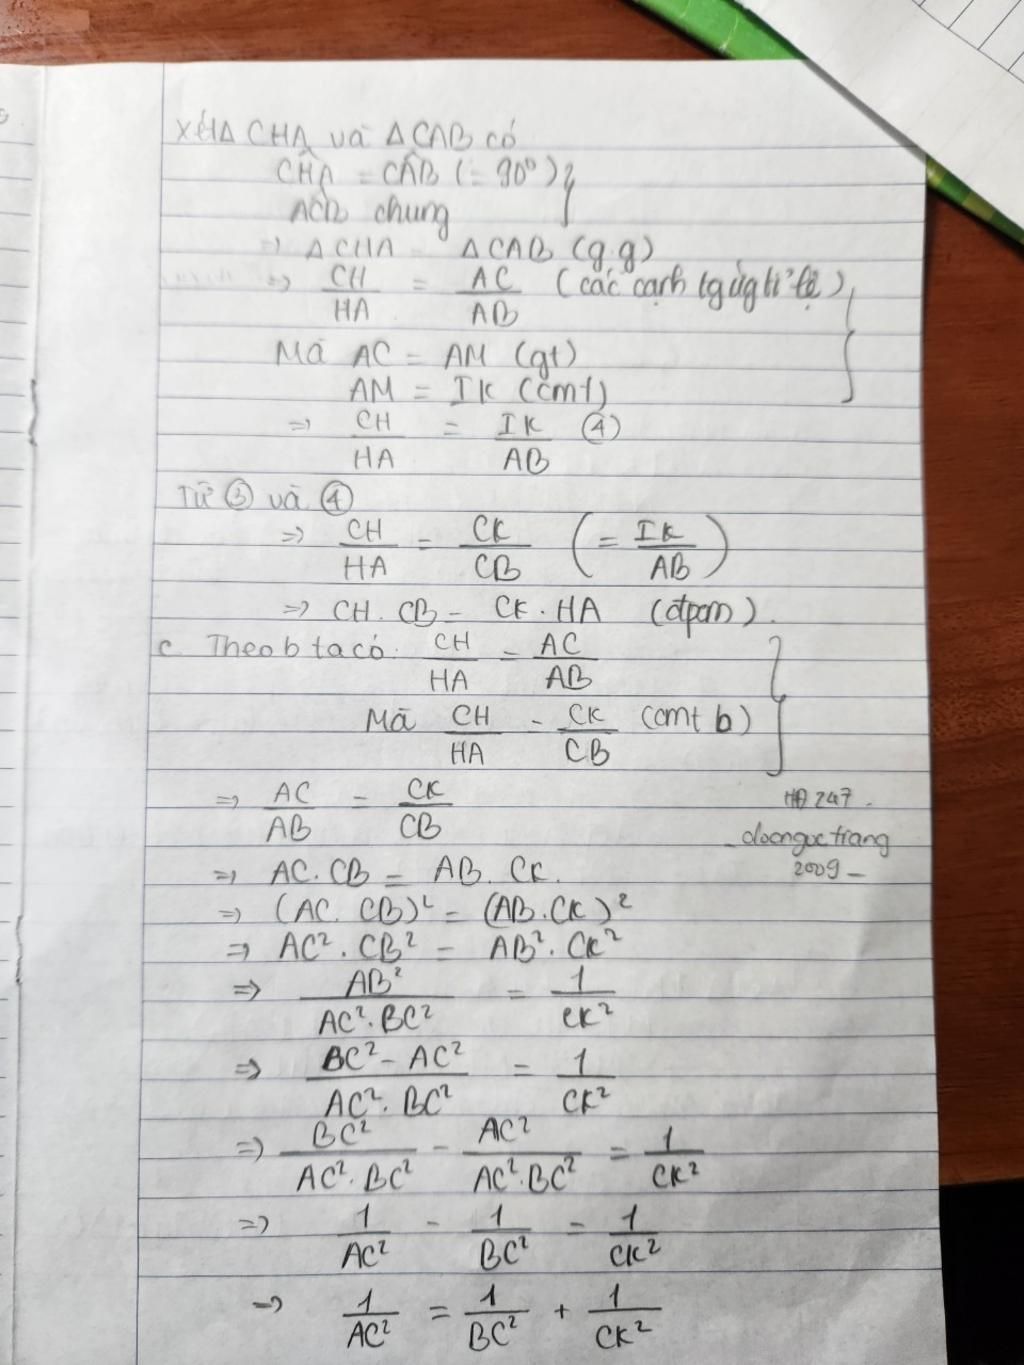 Xét Δ CHA và Δ CAB có
CĤA = CÂB (= 90°)
ACB chung
=> Δ CHA ~ Δ CAB (g.g)
=> CH/HA = AC/AB (các cạnh tg ứg tỉ lệ)
Mà AC = AM (gt)
AM = IK (cmt)
=> CH/HA = IK/AB ④
Từ ③ và ④
=> CH/HA = CK/CB (= IK/AB)
=> CH . CB = CK . HA (đpcm).
c. Theo b ta có. CH/HA = AC/AB
Mà CH/HA = CK/CB (cmt b)
=> AC/AB = CK/CB
HĐ 247.
_doongoctrang
2009_
=> AC . CB = AB . CK.
=> (AC . CB)² = (AB . CK)²
=> AC² . CB² = AB² . CK²
=> AB²/AC² . BC² = 1/CK²
=> BC² - AC²/AC² . BC² = 1/CK²
=> BC²/AC² . BC² - AC²/AC² . BC² = 1/CK²
=> 1/AC² - 1/BC² = 1/CK²
=> 1/AC² = 1/BC² + 1/CK²